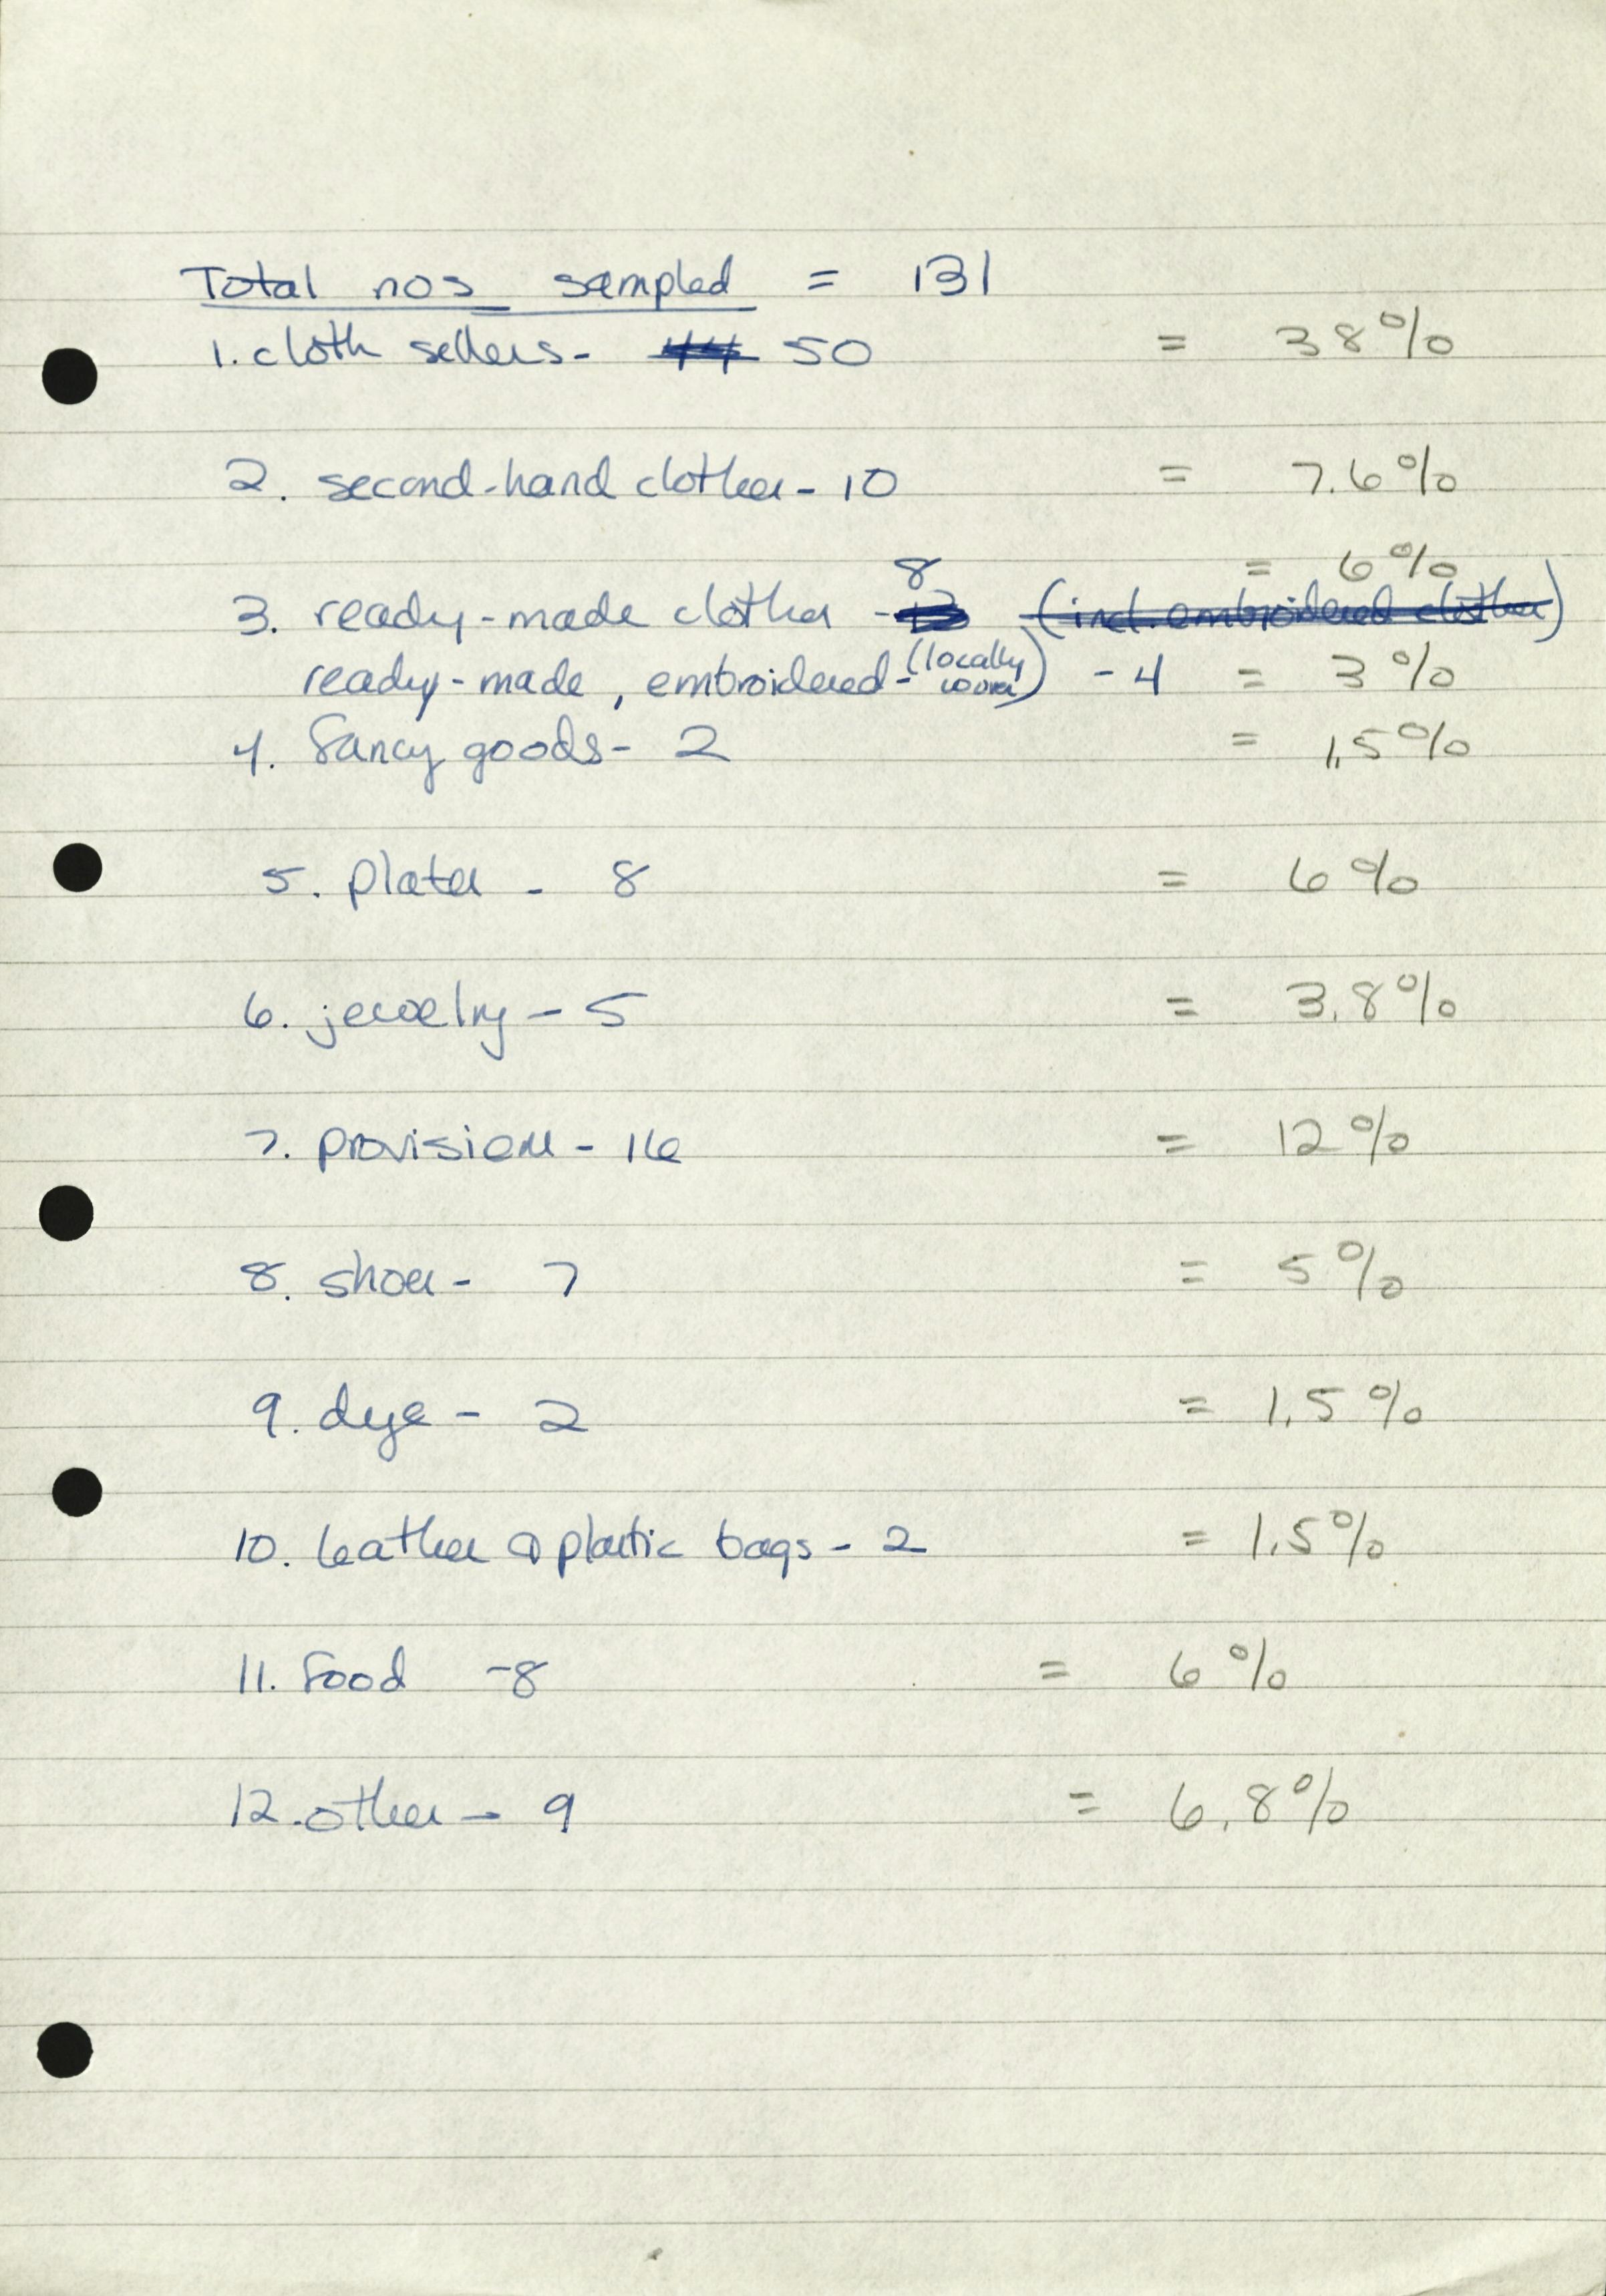 Total nos sampled = 131
1. cloth sellers - 44 50 = 38%
2. second-hand clothes - 10 = 7.6%
3. ready-made clothes - 8 (incl. embroidered clothes) = 6%
ready-made, embroidered - (locally woven) - 4 = 3%
4. fancy goods - 2 = 1.5%
5. plates - 8 = 6%
6. jewelry - 5 = 3.8%
7. provisions - 16 = 12%
8. shoes - 7 = 5%
9. dye - 2 = 1.5%
10. leather & plastic bags - 2 = 1.5%
11. food - 8 = 6%
12. other - 9 = 6.8%